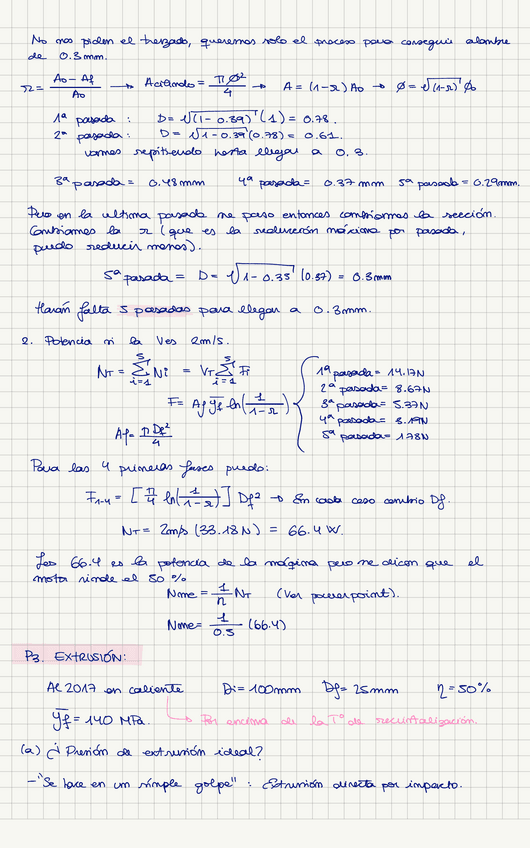 No nos piden el trenzado, queremos solo el proceso para conseguir alambre
de 0.3mm.
r = (A0 - Af)/A0 → Acilindro = πø²/4 → A = (1-r) A0 → ø = √(1-r) ø0
1ª pasada : D = √(1-0.39) (1) = 0.78.
2ª pasada : D = √1-0.39 (0.78) = 0.61.
vamos repitiendo hasta llegar a 0.3.
3ª pasada = 0.48mm 4ª pasada = 0.37 mm 5ª pasada = 0.29mm.
Pero en la ultima pasada me paso entonces cambiamos la sección.
Cambiamos la r (que es la reducción máxima por pasada,
puedo reducir menos).
5ª pasada = D = √1-0.35 (0.37) = 0.3mm
Harán falta 5 pasadas para llegar a 0.3mm.
2. Potencia si la V es 2m/s.
NT = Σ(i=1→5) Ni = VT Σ(i=1→5) Fi
F = Af Ȳf ln(1/(1-r))
Af = πDf²/4
1ª pasada = 14.17N
2ª pasada = 8.67N
3ª pasada = 5.37N
4ª pasada = 3.19N
5ª pasada = 1.78N
Para las 4 primeras fases puedo:
F1-4 = [π/4 ln(1/(1-r))] Df² → En cada caso cambio Df.
NT = 2m/s (33.18N) = 66.4 W.
Los 66.4 es la potencia de la máquina pero me dicen que el
motor rinde el 50 %
Nme = 1/η NT (Ver powerpoint).
Nme = 1/0.5 (66.4)
P3. EXTRUSIÓN:
Al 2017 en caliente Di = 100mm Df = 25mm η = 50%
Ȳf = 140 MPa. → Por encima de la Tº de recristalización.
(a) ¿Presión de extrusión ideal?
- "Se hace en un simple golpe" : Extrusión directa por impacto.